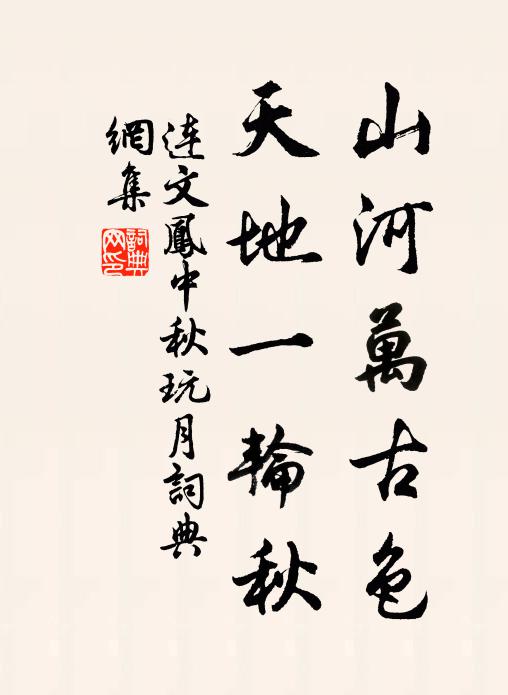 山河萬古色
天地一輪秋
連文鳳中秋玩月詞典
網集
詞典
网印